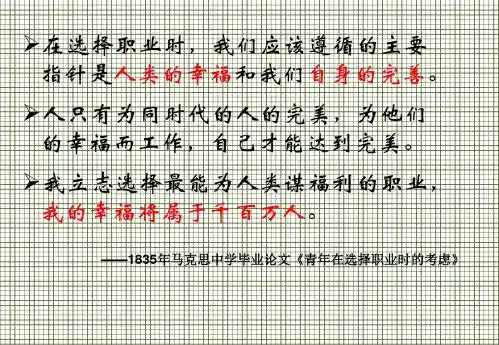 ➢在选择职业时，我们应该遵循的主要
指针是人类的幸福和我们自身的完善。
➢人只有为同时代的人的完美，为他们
的幸福而工作，自己才能达到完美。
➢我立志选择最能为人类谋福利的职业，
我的幸福将属于千百万人。
——1835年马克思中学毕业论文《青年在选择职业时的考虑》